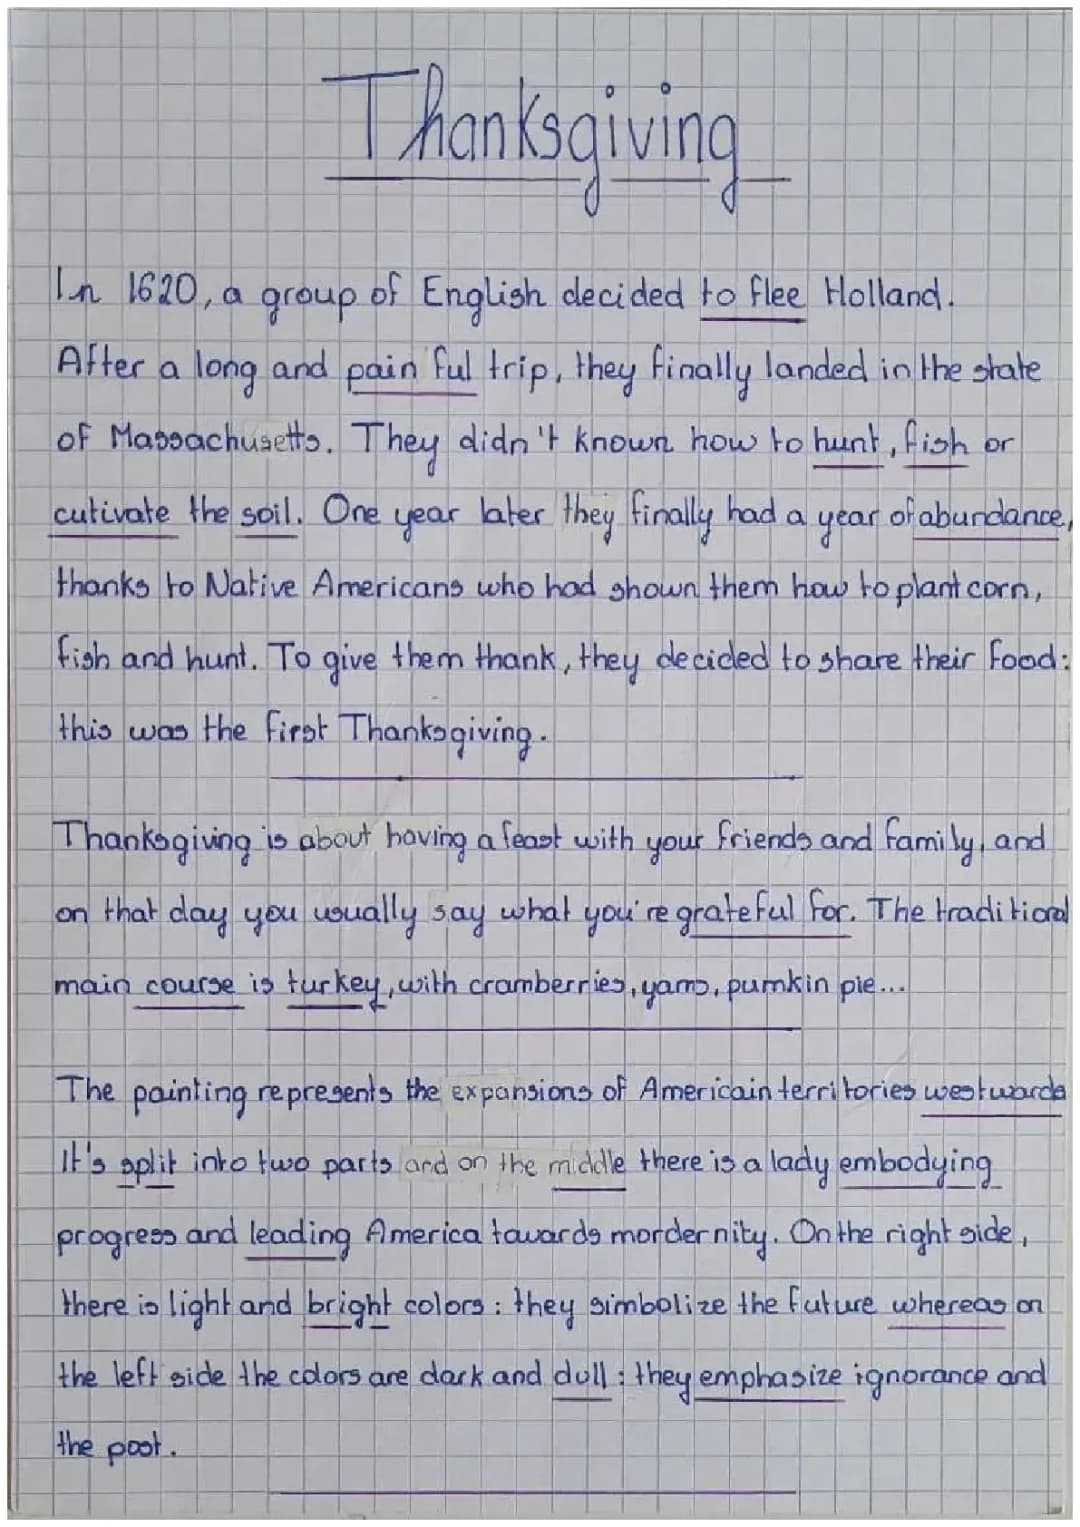 Thanksgiving
In 1620, a group of English decided to flee Holland.
After a long and pain ful trip, they finally landed in the state
of Massachusetts. They didn't known how to hunt, fish or
cutivate the soil. One year later they finally had a year of abundance,
thanks to Native Americans who had shown them how to plant corn,
fish and hunt. To give them thank, they decided to share their food:
this was the first Thanksgiving.
Thanksgiving is about having a feast with your friends and family, and
on that day you usually say what you're grateful for. The traditional
main course is turkey, with cramberries, yams, pumkin pie...
The painting represents the expansions of Americain territories westwards
It's split into two parts and on the middle there is a lady embodying
progress and leading America towards mordernity. On the right side,
there is light and bright colors: they simbolize the future whereas on
the left side the colors are dark and dull: they emphasize ignorance and
the past.